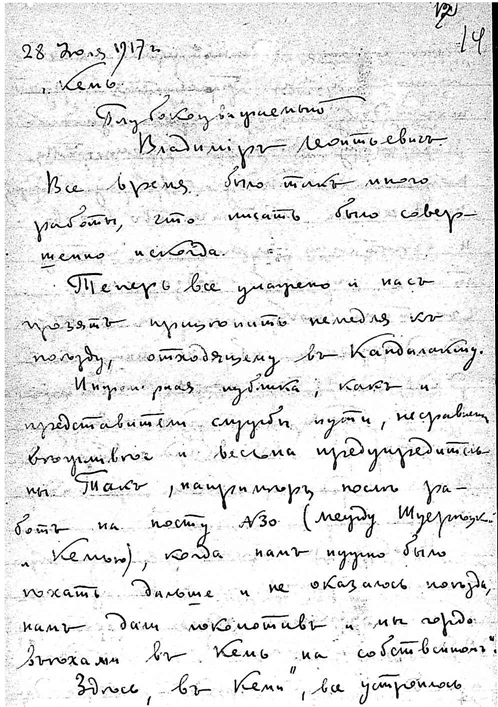 14
28 Іюля 1917 г.
"Кемь"
Глубокоуважаемый
Владиміръ Леонтьевичъ.
Все время было такъ много
работы, что писать было совер-
шенно некогда.
Теперь все улажено и насъ
грозятъ прицѣпить немедля къ
поѣзду, отходящему въ Кандалакшу.
публика, какъ и
представители службы пути, несравненно
вѣжливѣе и весьма предупредитель-
ны. Такъ, напримѣръ, послѣ ра-
ботъ на посту №30 (между
и Кемью), когда намъ нужно было
ѣхать дальше и не оказалось поѣзда,
намъ дали локомотивъ и мы гордо
въѣхали въ Кемь на "собственномъ".
Здѣсь, въ "Кеми", все устроилось